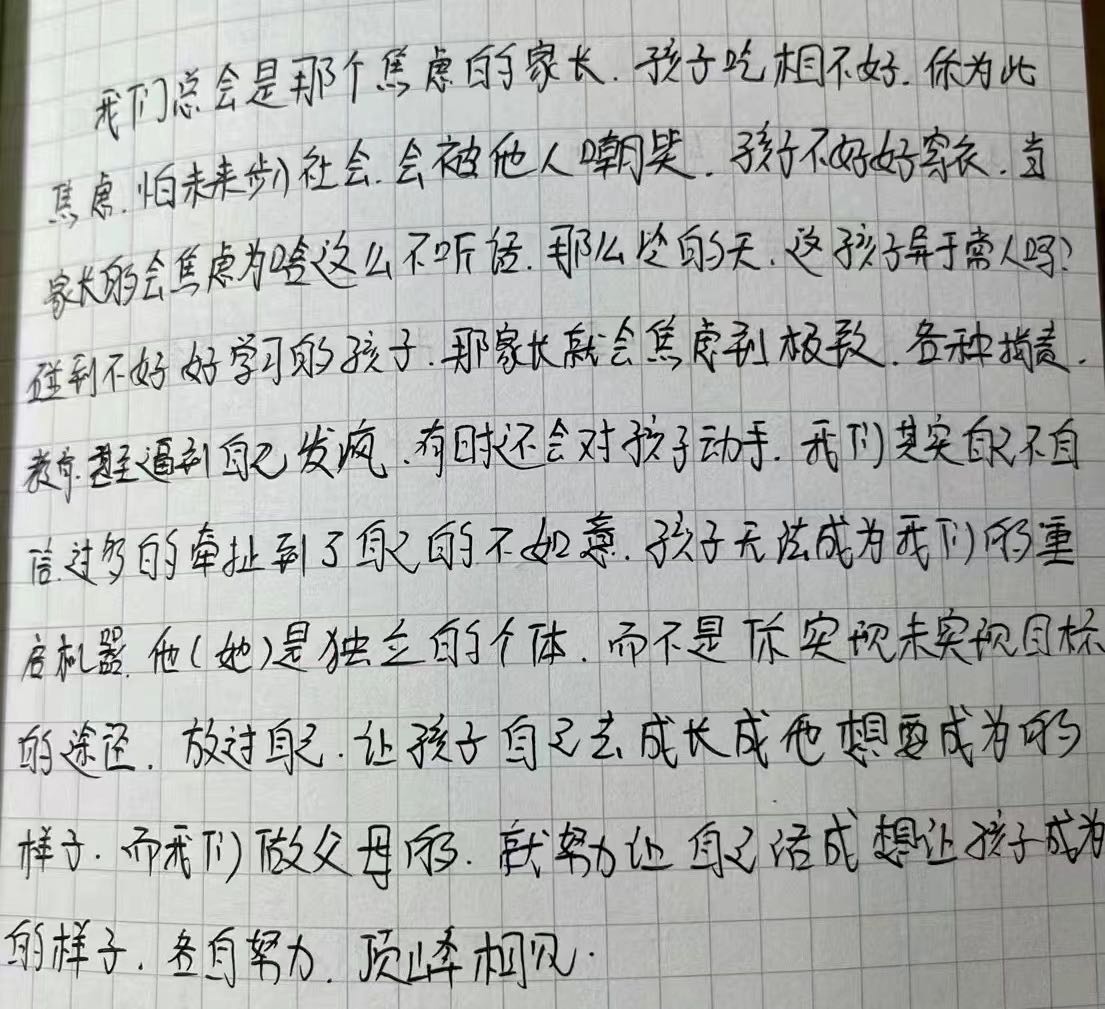 我们总会是那个焦虑的家长.孩子吃相不好.你为此
焦虑.怕未来步入社会.会被他人嘲笑.孩子不好好穿衣.当
家长的会焦虑为啥这么不听话.那么冷的天.这孩子异于常人吗?
碰到不好好学习的孩子.那家长就会焦虑到极致.各种指责.
教育.甚至逼到自己发疯.有时还会对孩子动手.我们其实自己不自
信.过多的牵扯到了自己的不如意.孩子无法成为我们的重
启机器.他(她)是独立的个体.而不是你实现未实现目标
的途径.放过自己.让孩子自己去成长成他想要成为的
样子.而我们做父母的.就努力让自己活成想让孩子成为
的样子.各自努力.顶峰相见.